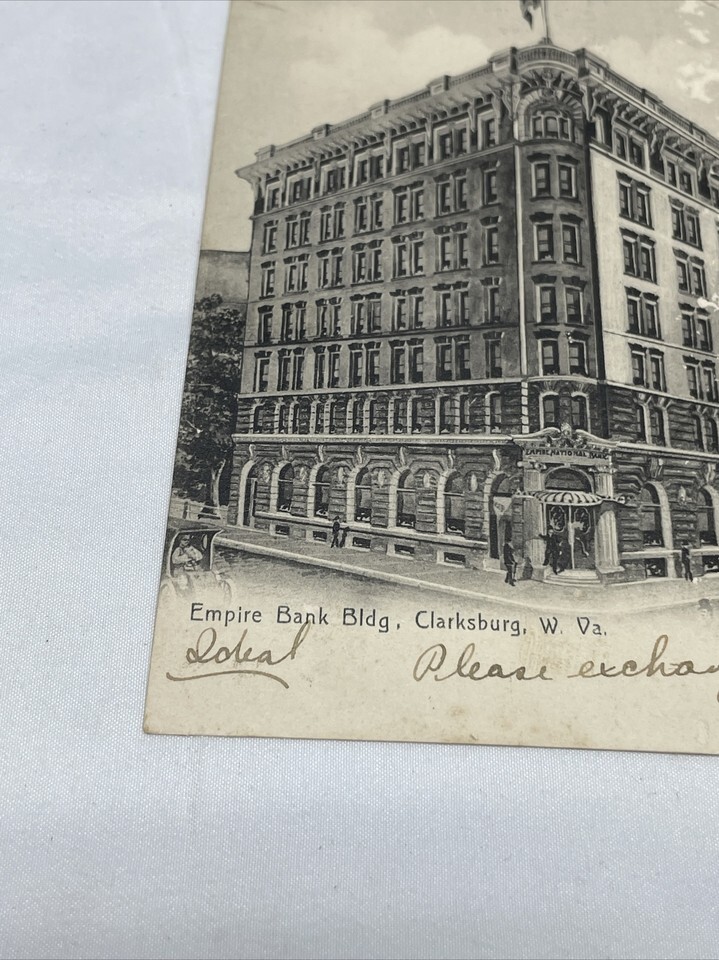 EMPIRE NATIONAL BANK
Empire Bank Bldg, Clarksburg, W. Va.
Ideal Please exchan